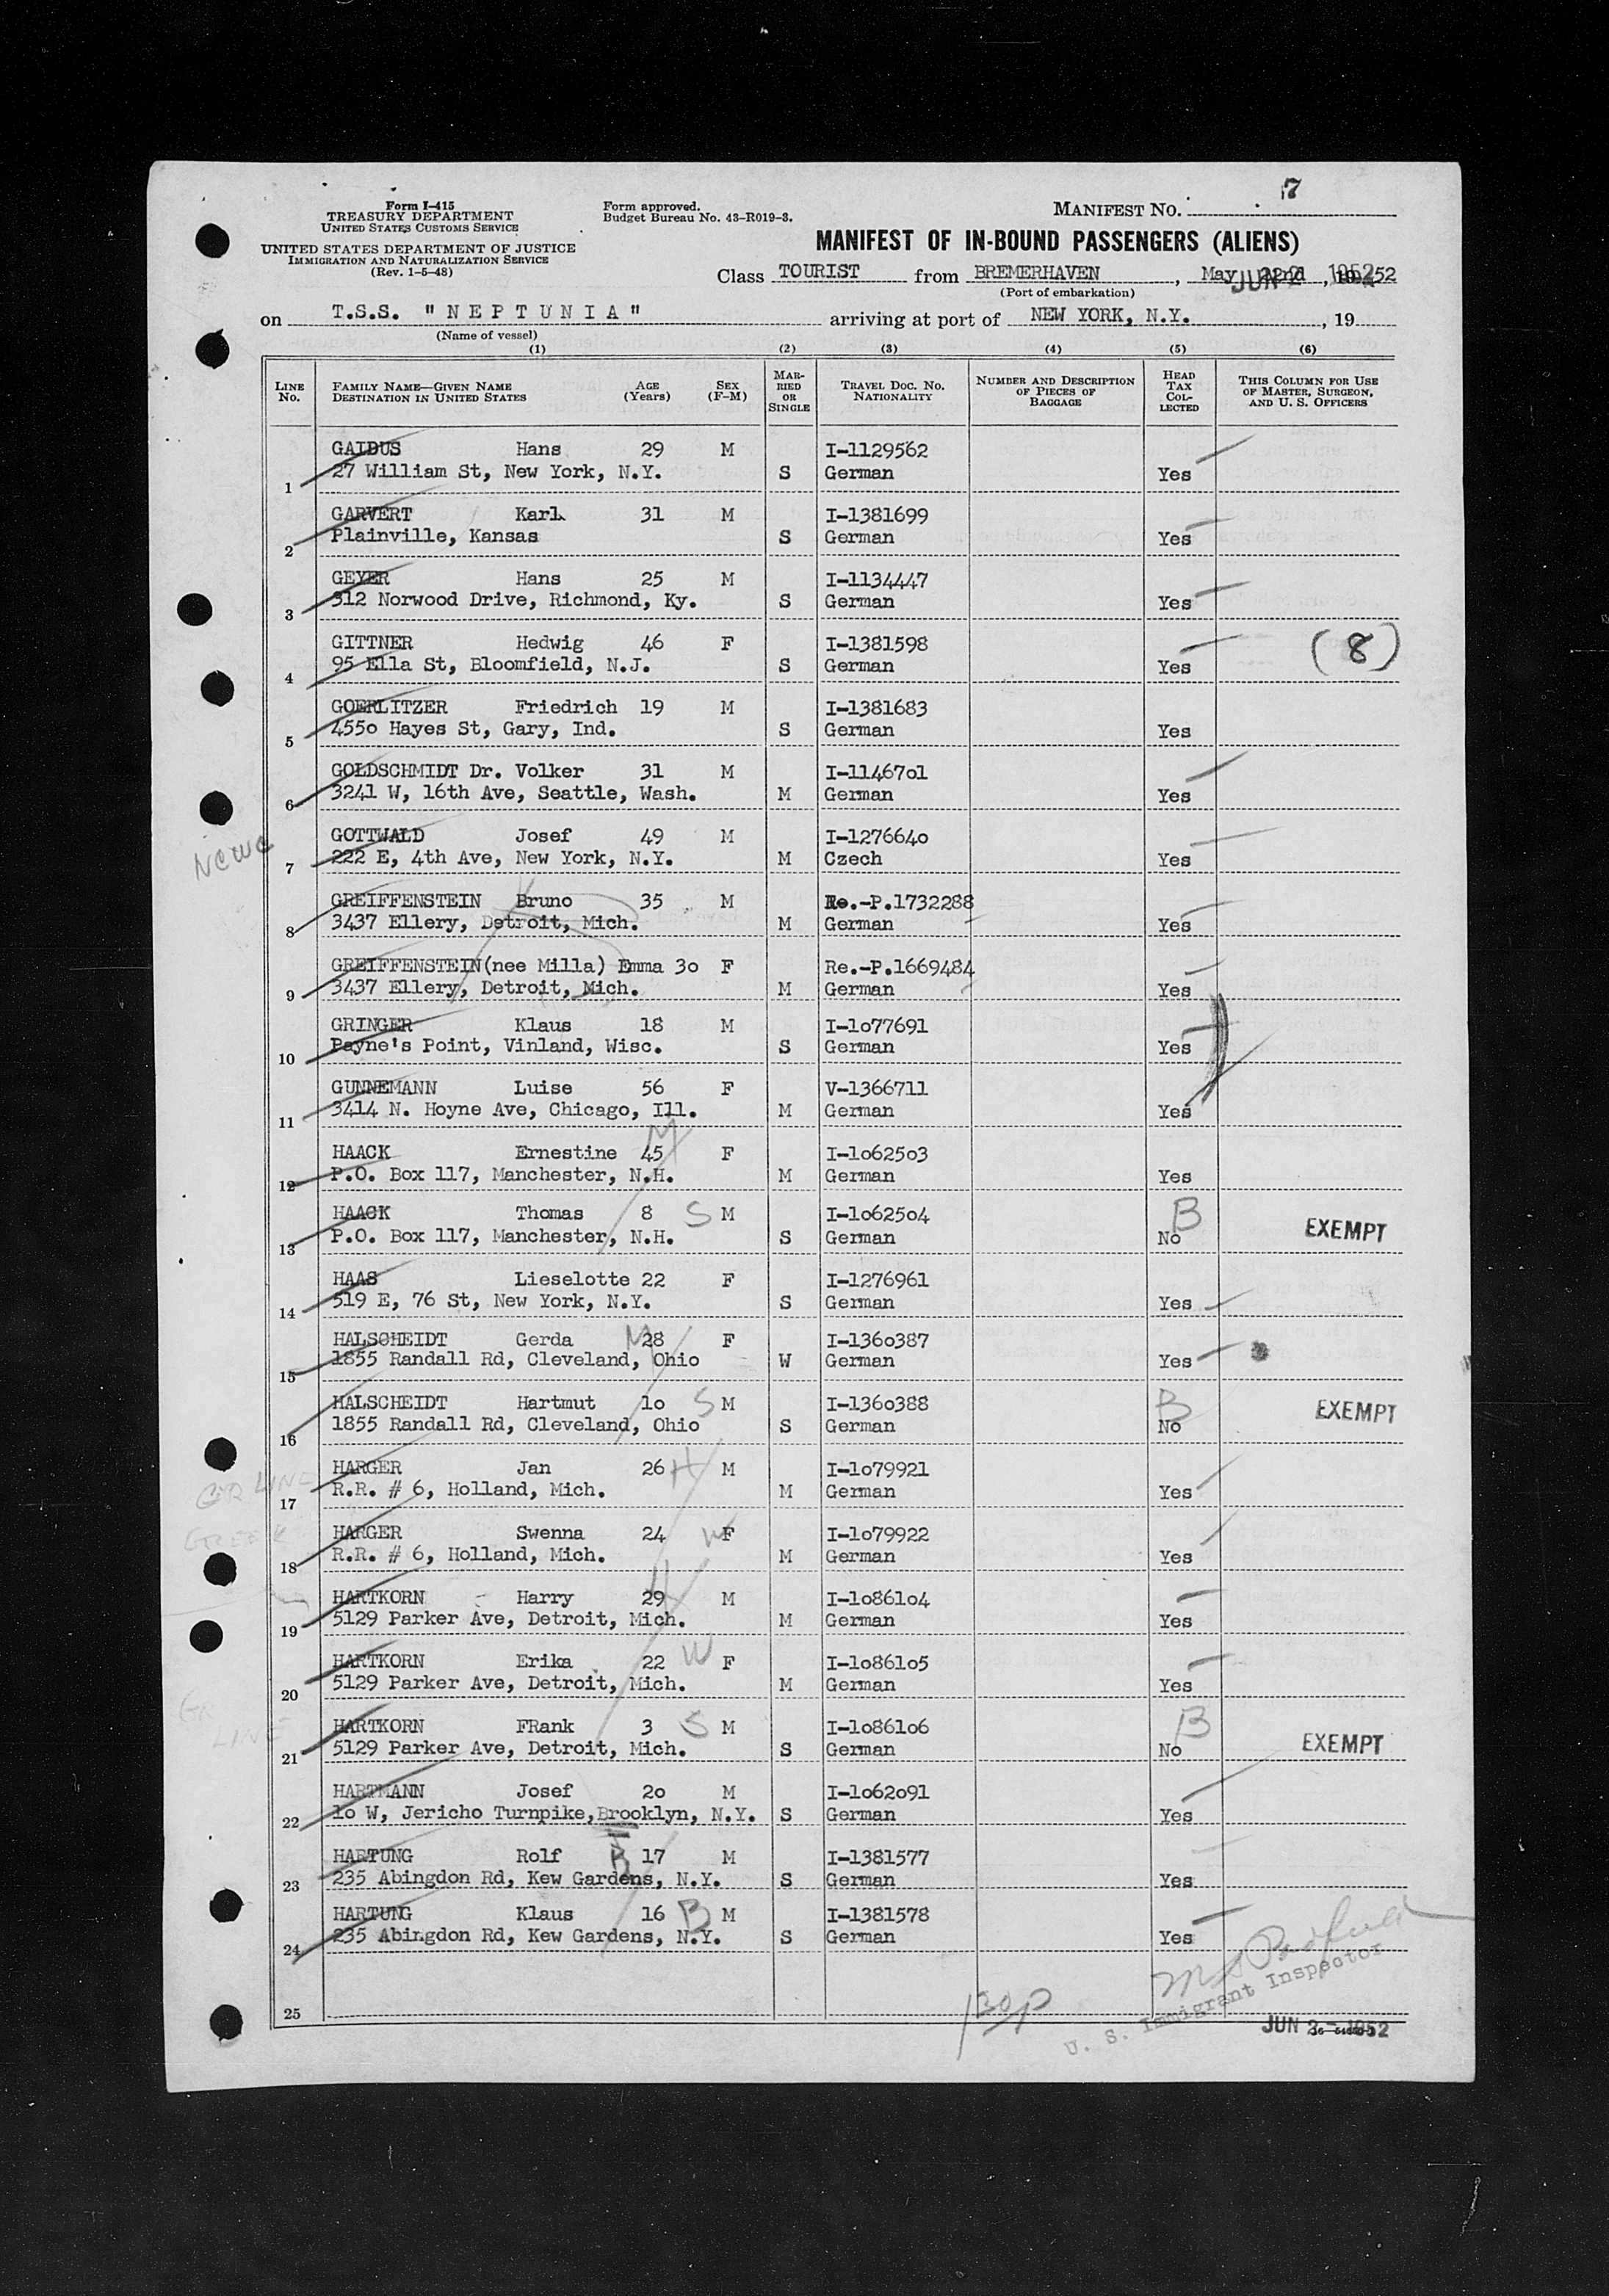 7
Form I-415
TREASURY DEPARTMENT
UNITED STATES CUSTOMS SERVICE
UNITED STATES DEPARTMENT OF JUSTICE
IMMIGRATION AND NATURALIZATION SERVICE
(Rev. 1-5-48)
Form approved.
Budget Bureau No. 43-R019-3.
MANIFEST NO.
MANIFEST OF IN-BOUND PASSENGERS (ALIENS)
Class TOURIST from BREMERHAVEN, May 22nd, 1952
JUN 2 1952
(Port of embarkation)
on T.S.S. "NEPTUNIA" arriving at port of NEW YORK, N.Y., 19
(Name of vessel)
(1) (2) (3) (4) (5) (6)
LINE No. FAMILY NAME—GIVEN NAME DESTINATION IN UNITED STATES AGE (Years) SEX (F-M) MARRIED OR SINGLE TRAVEL DOC. NO. NATIONALITY NUMBER AND DESCRIPTION OF PIECES OF BAGGAGE HEAD TAX COLLECTED THIS COLUMN FOR USE OF MASTER, SURGEON, AND U. S. OFFICERS
GAIDUS Hans 29 M I-1129562
1 27 William St, New York, N.Y. S German Yes
GARVERT Karl 31 M I-1381699
2 Plainville, Kansas S German Yes
GEYER Hans 25 M I-1134447
3 312 Norwood Drive, Richmond, Ky. S German Yes
GITTNER Hedwig 46 F I-1381598 (8)
4 95 Ella St, Bloomfield, N.J. S German Yes
GOERLITZER Friedrich 19 M I-1381683
5 455o Hayes St, Gary, Ind. S German Yes
GOLDSCHMIDT Dr. Volker 31 M I-11467o1
6 3241 W, 16th Ave, Seattle, Wash. M German Yes
GOTTWALD Josef 49 M I-127664o
NCWC
7 222 E, 4th Ave, New York, N.Y. M Czech Yes
GREIFFENSTEIN Bruno 35 M Re.-P.1732288
8 3437 Ellery, Detroit, Mich. M German Yes
GREIFFENSTEIN(nee Milla) Emma 3o F Re.-P.1669484
9 3437 Ellery, Detroit, Mich. M German Yes
GRINGER Klaus 18 M I-1o77691
10 Payne's Point, Vinland, Wisc. S German Yes
GUNNEMANN Luise 56 F V-1366711
11 3414 N. Hoyne Ave, Chicago, Ill. M German Yes
HAACK Ernestine 45 M F I-1o625o3
12 P.O. Box 117, Manchester, N.H. M German Yes
HAACK Thomas 8 S M I-1o625o4 B
13 P.O. Box 117, Manchester, N.H. S German No EXEMPT
HAAS Lieselotte 22 F I-1276961
14 519 E, 76 St, New York, N.Y. S German Yes
HALSCHEIDT Gerda M 28 F I-136o387
15 1855 Randall Rd, Cleveland, Ohio W German Yes
HALSCHEIDT Hartmut 1o S M I-136o388 B EXEMPT
16 1855 Randall Rd, Cleveland, Ohio S German No
HARGER Jan 26 H M I-1o79921
GR LINE
17 R.R. # 6, Holland, Mich. M German Yes
HARGER Swenna 24 W F I-1o79922
GREEK
18 R.R. # 6, Holland, Mich. M German Yes
HARTKORN Harry 29 H M I-1o861o4
19 5129 Parker Ave, Detroit, Mich. M German Yes
HARTKORN Erika 22 W F I-1o861o5
20 5129 Parker Ave, Detroit, Mich. M German Yes
HARTKORN FRank 3 S M I-1o861o6 B
GR LINE
21 5129 Parker Ave, Detroit, Mich. S German No EXEMPT
HARTMANN Josef 2o M I-1o62o91
22 1o W, Jericho Turnpike,Brooklyn, N.Y. S German Yes
HARTUNG Rolf B 17 M I-1381577
23 235 Abingdon Rd, Kew Gardens, N.Y. S German Yes
HARTUNG Klaus 16 B M I-1381578
24 235 Abingdon Rd, Kew Gardens, N.Y. S German Yes
25
130p
U. S. Immigrant Inspector
JUN 2 - 1952